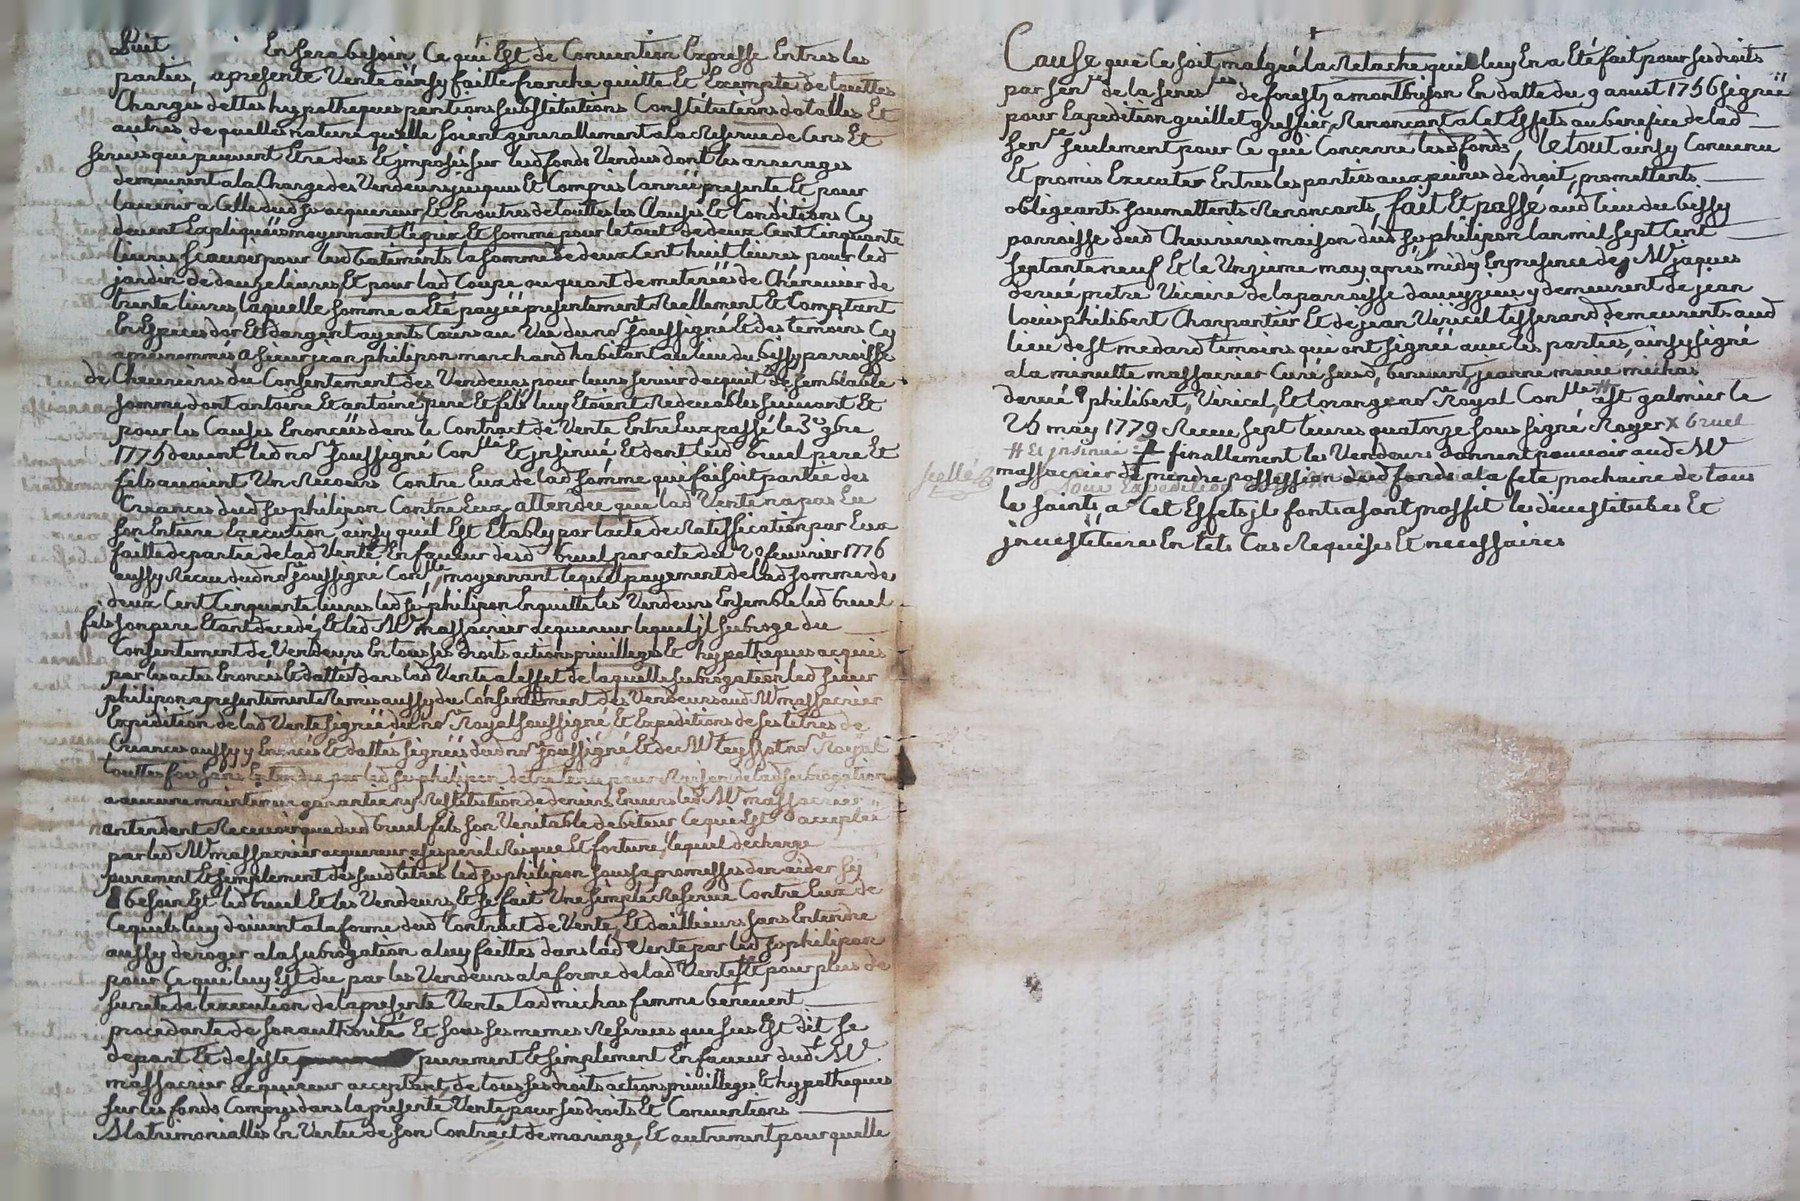 Suit En sera besoin, Ce qui Est de Convention Expresse Entres les
parties, a presente Vente ainsy faitte franche quitte Et Exempte de touttes
Charges dettes hypotheques pentions substitutions Constitutions dotalles Et
autres de quelle nature qu'elle soient generallement a la Reserve de Cens Et
servis qui peuvent Etre dus Et imposés sur lesd fonds Vendus dont les arrerages
demeurent a la Charge des Vendeurs jusques Et Compris l'année presente Et pour
l'avenir a Celle dud sr acquereur, Et En outres de touttes les Clauses Et Conditions Cy
devant Expliquées moyennant le prix Et somme pour le tout de deux Cent Cinquante
livres scavoir pour lesd batiments la somme de deux Cent huit livres pour led
jardin de douze livres Et pour lad Coupe ou quart de meterée de Chenevier de
trente livres, laquelle somme a Eté payée presentement Reellement Et Comptant
En Especes d'or Et d'argent ayents Cours au Vu du nore soussigné Et des temoins Cy
apres nommés a sieur jean philipon marchand habitant au lieu du bissy parroisse
de Chevrieres du Consentement des Vendeurs pour leurs servir d'acquit de semblable
somme dont antoine Et antoine pere Et fils luy Etoient Redevables suivant Et
pour les Causes Enoncées dans le Contract de Vente Entre Eux passé le 3e 9bre
1775 devant led nore soussigné Conllé Et insinué Et dont lesd bruel pere Et
fils avoient Un Recours Contre Eux de lad somme qui faisoit partie des
Creances dud sr philipon Contre Eux, attendre que lad Vente n'a pas Eu
son Entiere Execution, ainsy quil Est Etably par l'acte de Ratiffication par Eux
faitte de partie de lad Vente En faveur desd bruel par acte du 20 fevrier 1776
aussy Receu dud nore soussigné Conllé, moyennant lequel payement de lad somme de
deux Cent Cinquante livres led sr philipon En quitte les Vendeurs Ensemble led bruel
fils son pere Etant decedé, Et led Mre massacrier acquereur lequel jl subroge du
Consentement de Vendeurs En tous ses droits actions privilleges Et hypotheques acquis
par les actes Enoncés Et dattés dans lad Vente a l'effet de laquelle subrogation led sieur
philipon a presentemente Remis aussy du Consentement des Vendeurs aud Mre massacrier
Expedition de lad Vente signée dud nore Royal soussigné Et Expeditions de ses titres de
Creances aussy y Enoncés Et dattés signées dud nore soussigné Et de Me teyssot nore Royal
touttes fois sans Entendre par led sr philipon detre tenu pour Raison de lad subrogation
a aucune maintenue garantie ny Restitution de deniers Envers led Mre massacrier
n'entendent Recevoir que dud bruel fils son Veritable debiteur Ce qui Est accepté
par led Mre massacrier acquereur a ses peril Risque Et fortune, lequel decharge
purement Et simplement des susd titres led sr philipon sous sa promesse d'en aider sy
besoin Est led bruel Et les Vendeurs, Et se fait Une simple Reserve Contre Eux de
Ce quils luy doivent a la forme dud Contract de Vente, Et d'ailleurs sans Entendre
aussy deroger a la subrogation a luy faittes dans lad Vente par led sr philipon
pour Ce qui luy Est du par les Vendeurs a la forme de lad Vente, Et pour plus de
sureté de l'execution de la presente Vente lad michas femme benevent
procedante de son authorité, Et sous ses memes Reserves que sus Est dit se
depart Et desiste purement Et simplement En faveur dud Mre
massacrier acquereur acceptant, de tous ses droits actions privilleges Et hypotheques
sur les fonds Compris dans la presente Vente pour ses droits Et Conventions
Matrimonialles En Vertu de son Contract de mariage, Et autrement pour quelle
Cause que Ce soit malgré la Relache qui luy En a Eté fait pour ses droits
par senre de la senes de forestz a montbrison En datte du 9 aoust 1756 signée
pour Expedition guillet greffier, Renoncant a Cet Effets au benefice de lad
senre seulement pour Ce qui Concerne lesd fonds, le tout ainsy Convenu
Et promis Executer Entres les parties aux peines de droit, promettents
obligeants soumettents Renoncants, fait Et passé aud lieu du bissy
parroisse dud Chevrieres maison dud sr philipon l'an mil sept Cent
septante neuf Et le Unzieme may apres midy En presence de Mre jaques
derué pretre Vicaire de la parroisse d'aveyzieu y demeurent de jean
louis philibert Charpantier Et de jean Vericel tisserand demeurents aud
lieu de st medard temoins qui ont signée avec les parties, ainsy signé
a la minutte massacrier Curé susd, benevent, jeanne marie michas
derué, philibert, Vericel, Et lorange nore Royal Conllé a st galmier le
25 may 1779 Receu sept livres quatorze sous signé Royer X bruel
# Et insinué finallement les Vendeurs donnent pouvoir aud Mre
massacrier de prendre possession dud fonds a la fete prochaine de tous
les saints, a Cet Effets jls fonts a son proffit les devestitures Et
jnvestitures En tels Cas Requises Et necessaires
scellé